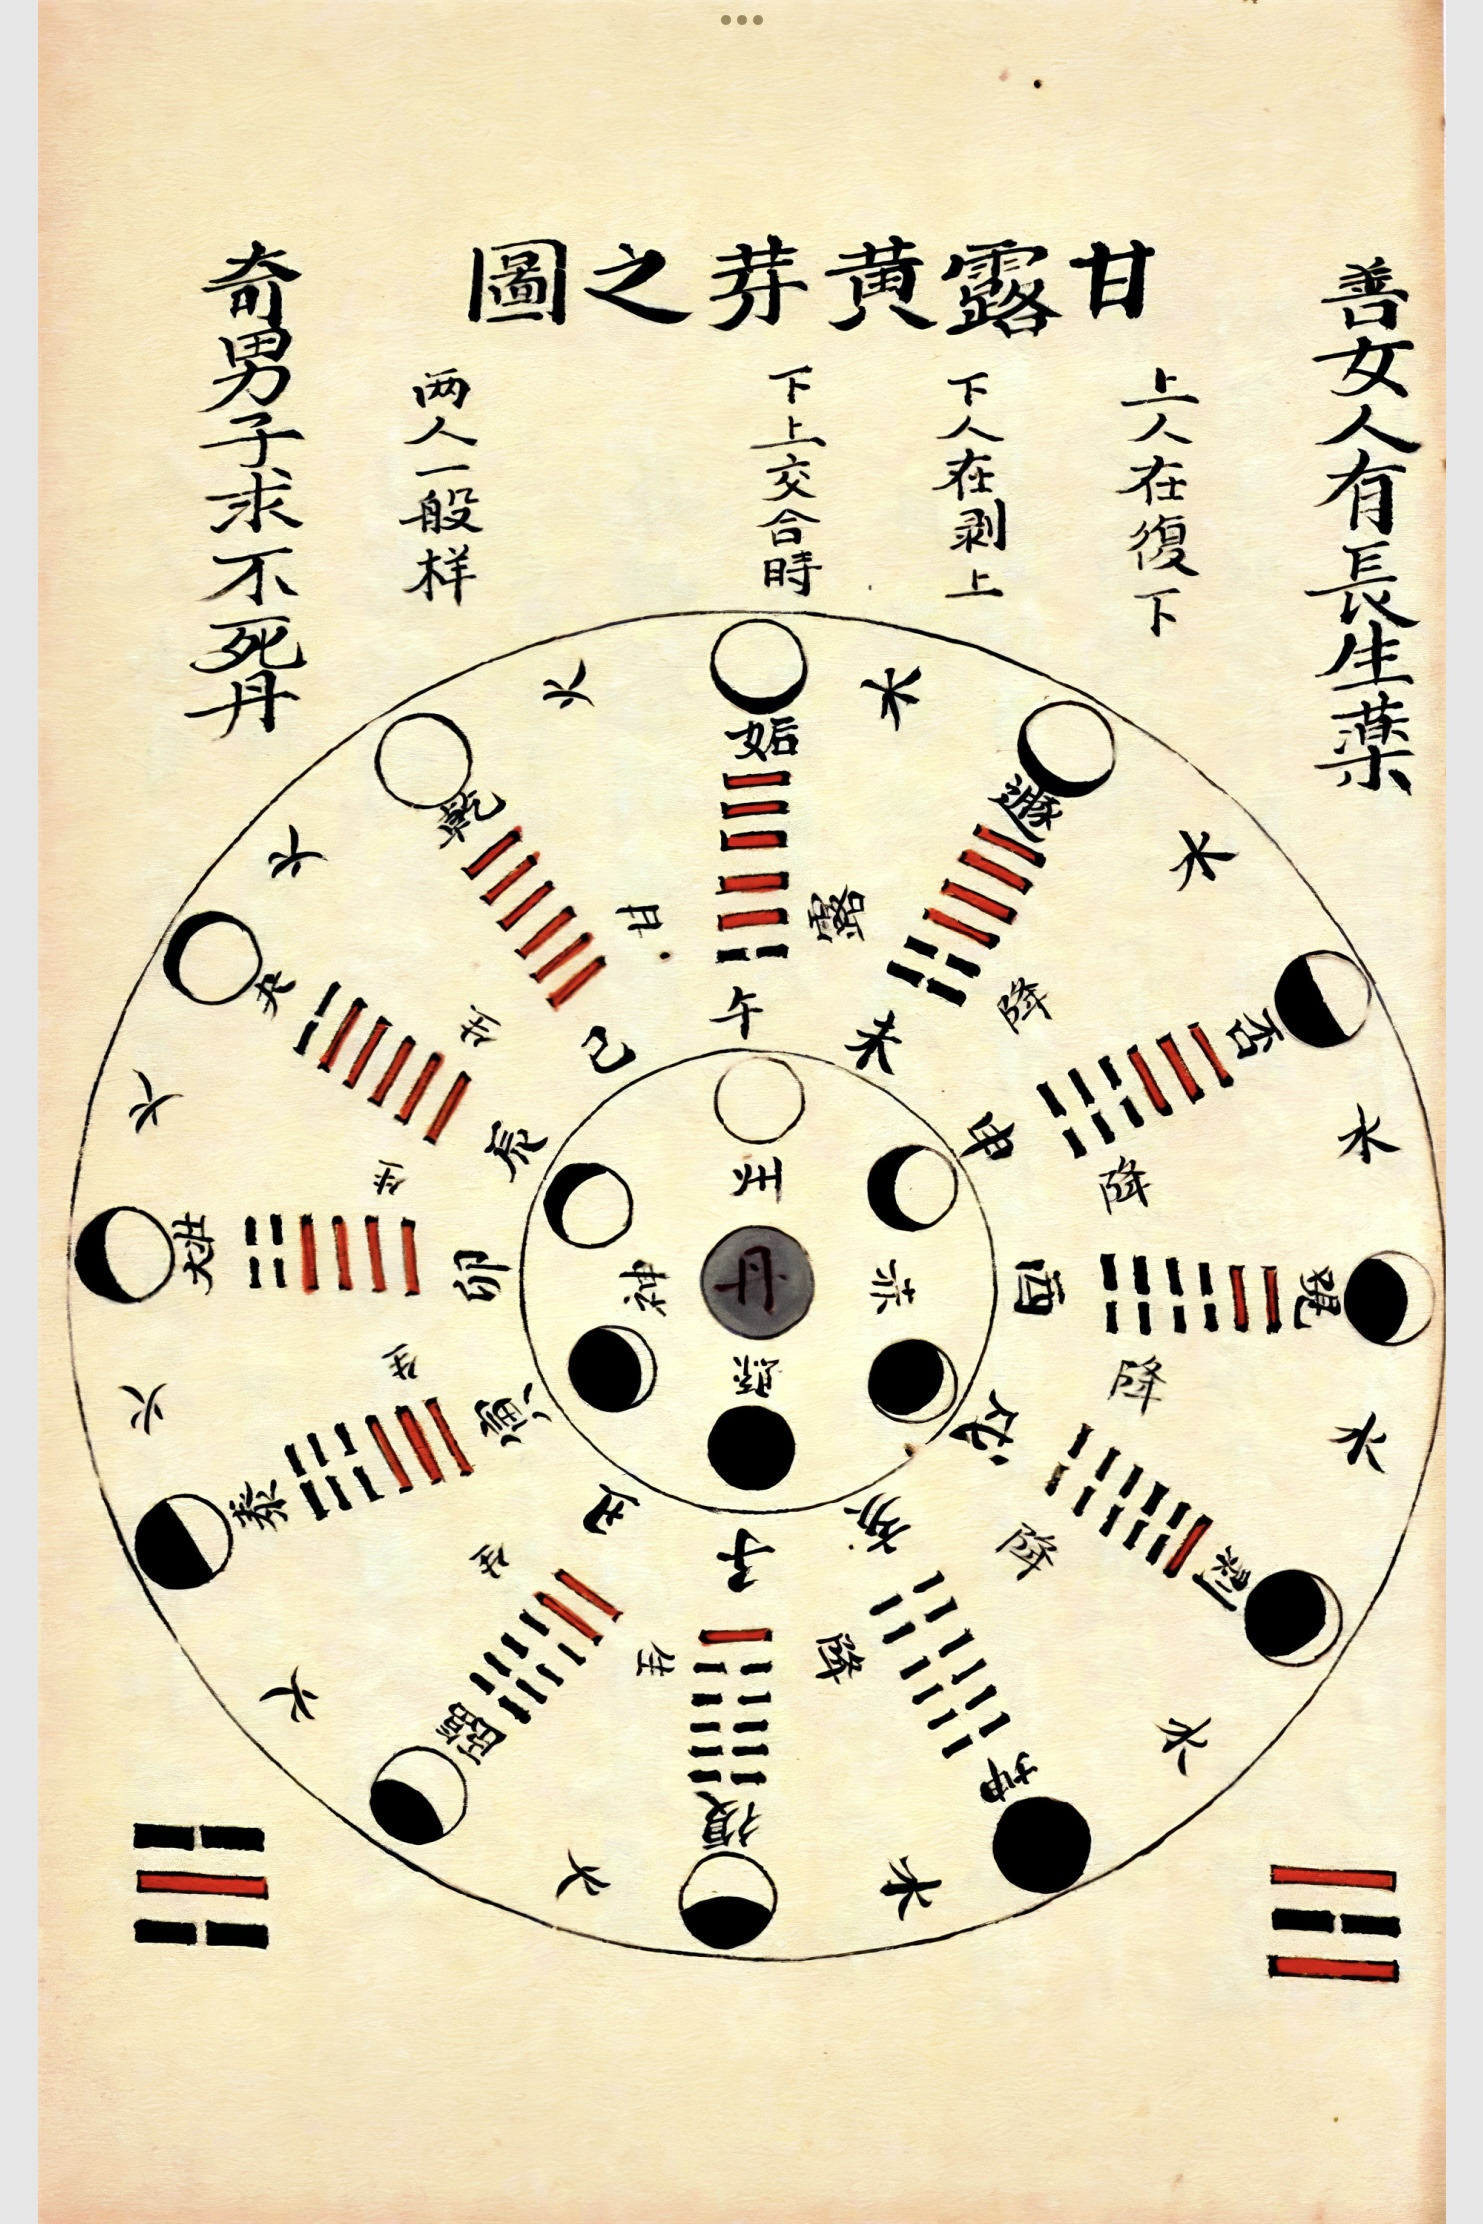 甘露黄芽之圖
善女人有長生薬
上人在復下
下人在剥上
下上交合時
两人一般样
奇男子求不死丹
水
水
水
水
水
水
火
火
火
火
火
火
姤
遯
否
覌
剥
坤
復
臨
泰
大壯
夬
乾
露
降
降
降
降
降
生
生
生
生
生
甘
午
未
申
酉
戌
亥
子
丑
寅
卯
辰
己
赤
神
丹